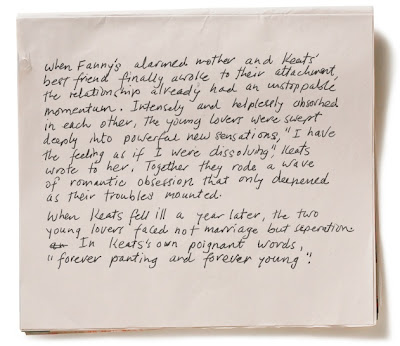 When Fanny's alarmed mother and Keats'
best friend finally awoke to their attachment,
the relationship already had an unstoppable
momentum. Intensely and helplessly absorbed
in each other, the young lovers were swept
deeply into powerful new sensations, "I have
the feeling as if I were dissolving", Keats
wrote to her. Together they rode a wave
of romantic obsession that only deepened
as their troubles mounted.
When Keats fell ill a year later, the two
young lovers faced not marriage but seperation.
In Keats's own poignant words,
"forever panting and forever young".